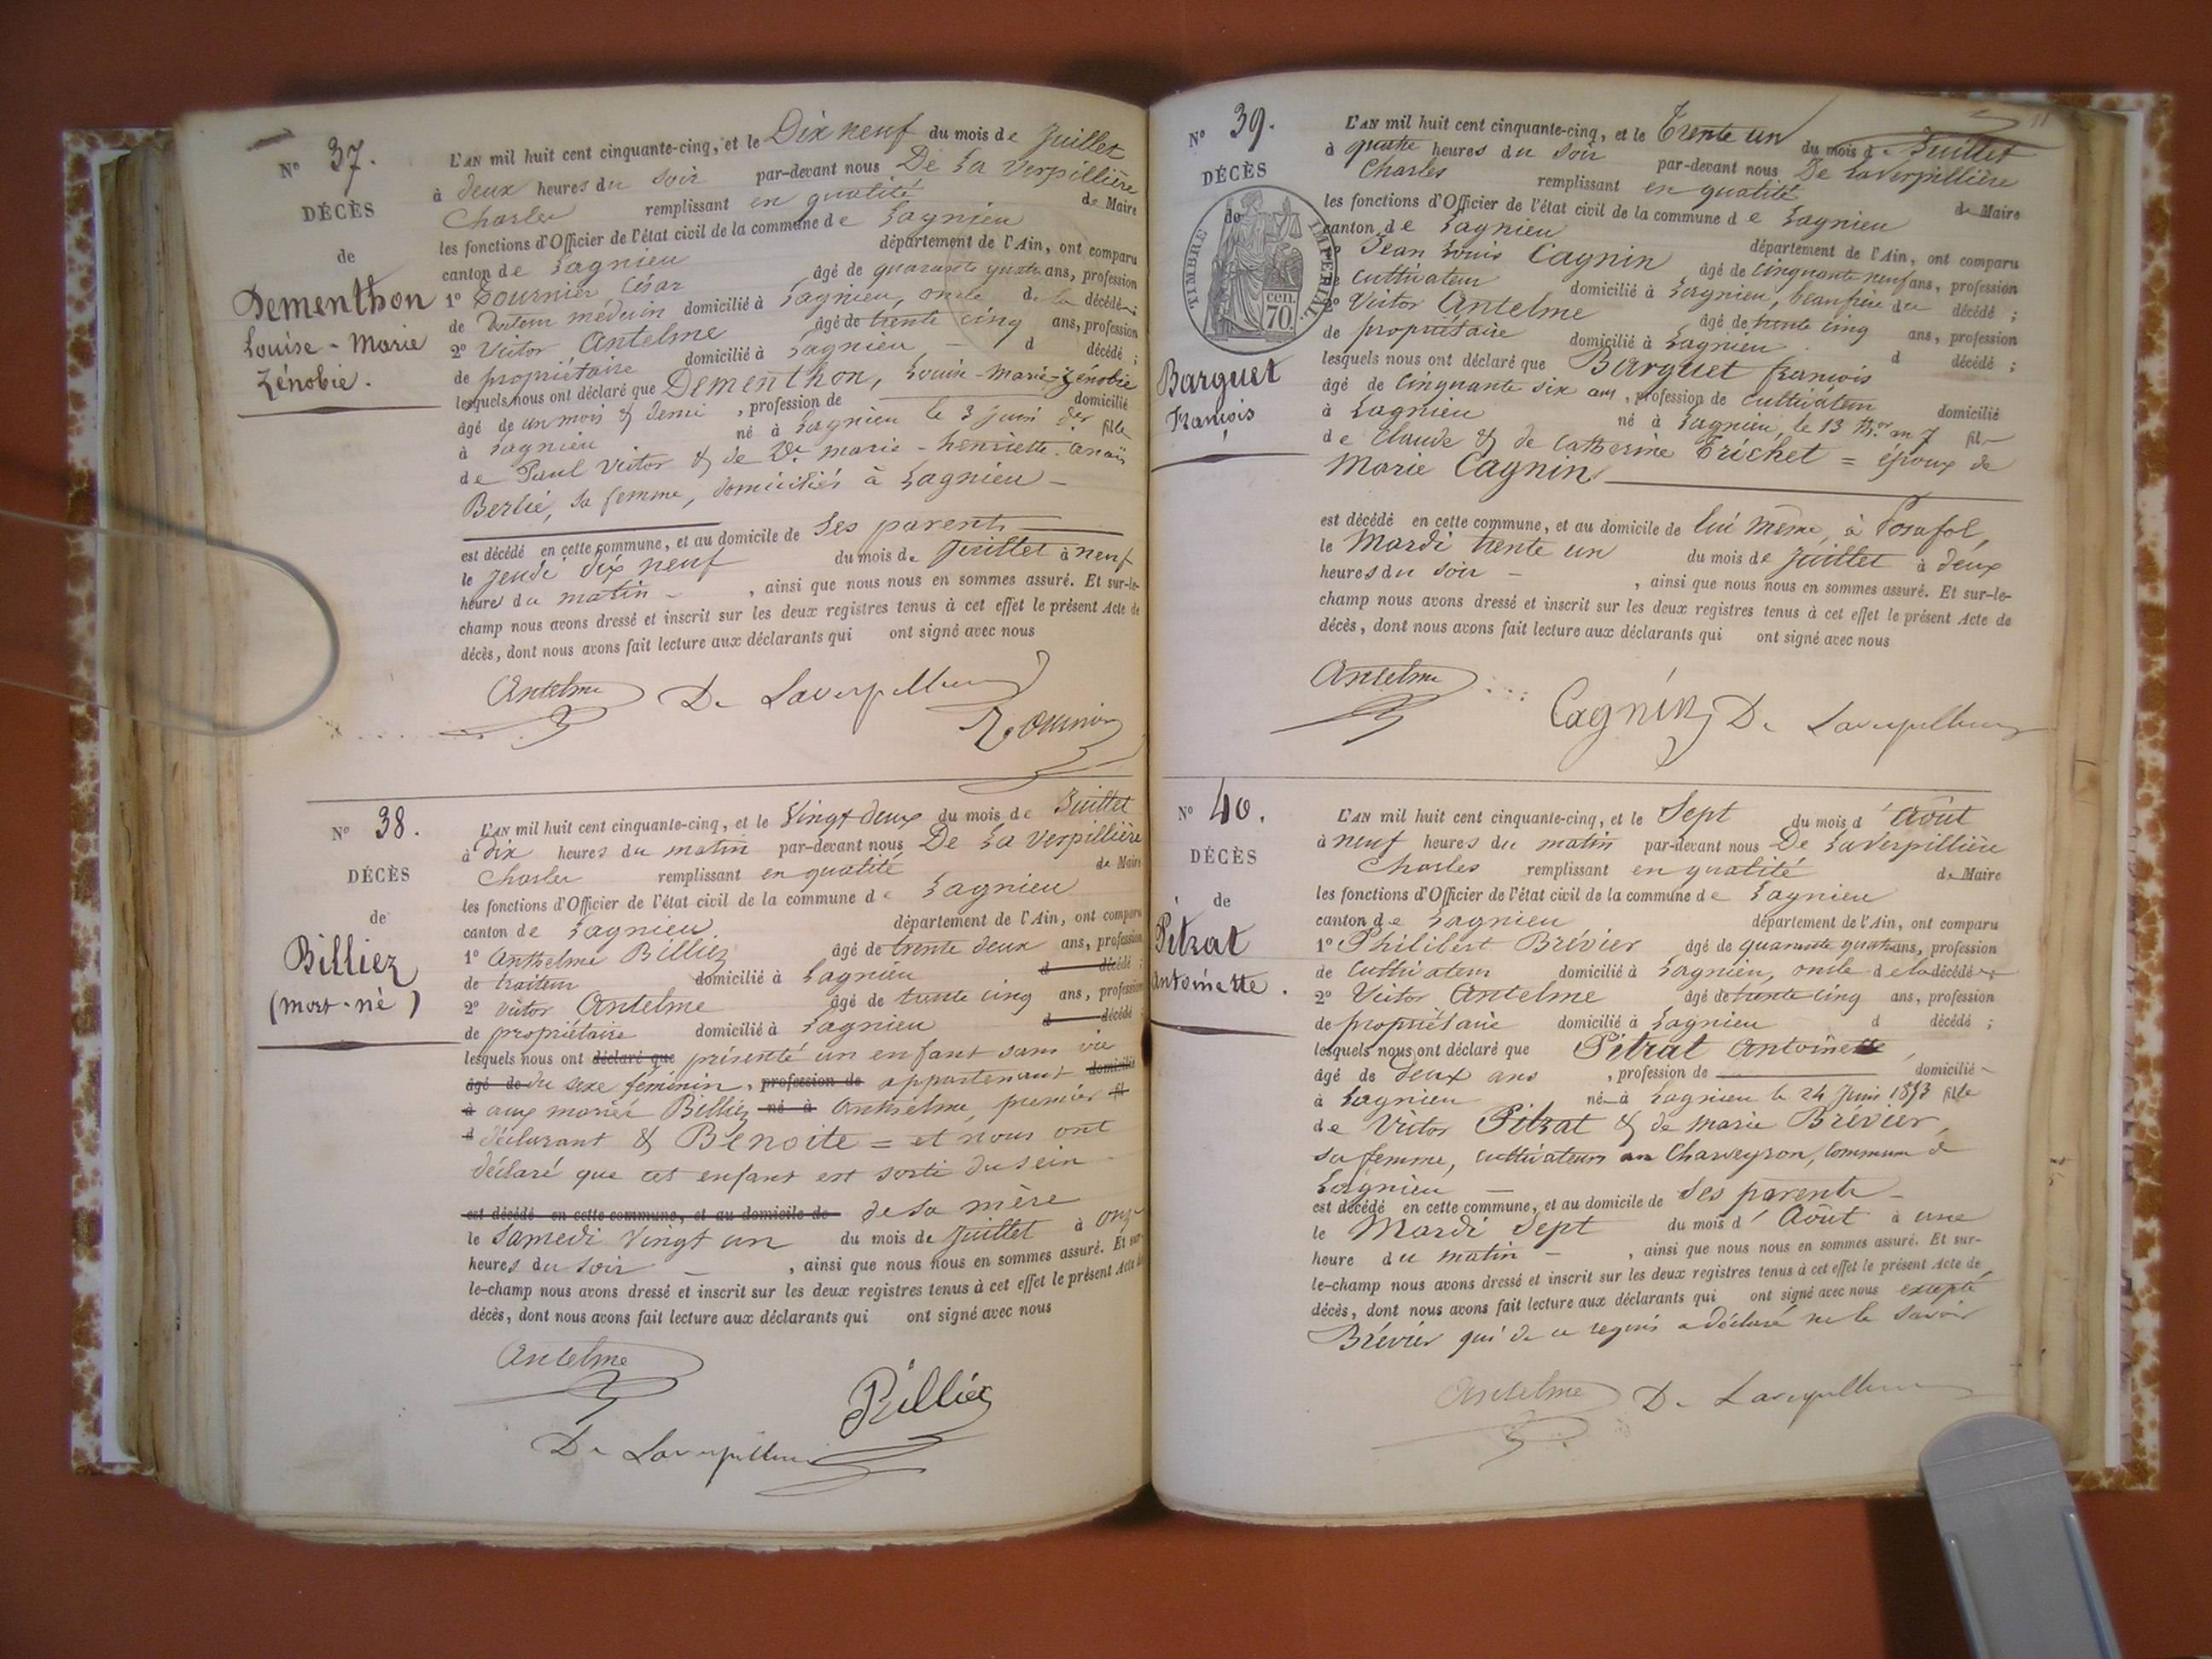 N° 37.
DÉCÈS
de
Dementhon
Louise-Marie
Zénobie.
L'AN mil huit cent cinquante-cinq, et le Dix neuf du mois de Juillet
à deux heures du soir par-devant nous De La Verpillière
Charles remplissant en qualité de Maire
les fonctions d'Officier de l'état civil de la commune de Lagnieu
canton de Lagnieu département de l'Ain, ont comparu
1° Tournier César âgé de quarante quatre ans, profession
de Docteur médecin domicilié à Lagnieu, oncle de la décédée;
2° Victor Antelme âgé de trente cinq ans, profession
de propriétaire domicilié à Lagnieu - d décédé;
lesquels nous ont déclaré que Dementhon, Louise-Marie-Zénobie
âgé de un mois & demi, profession de domicilié
à Lagnieu né à Lagnieu le 3 juin der fille
de Paul Victor & de De marie-henriette-anaïs
Berlié, sa femme, domiciliés à Lagnieu -
est décédé en cette commune, et au domicile de ses parents
le jeudi dix neuf du mois de Juillet à neuf
heures du matin -, ainsi que nous nous en sommes assuré. Et sur-le-
champ nous avons dressé et inscrit sur les deux registres tenus à cet effet le présent Acte de
décès, dont nous avons fait lecture aux déclarants qui ont signé avec nous
Antelme De Laverpilliere
Tournier
N° 38.
DÉCÈS
de
Billiez
(mort-né)
L'AN mil huit cent cinquante-cinq, et le Vingt deux du mois de Juillet
à Dix heures du matin par-devant nous De La Verpillière
Charles remplissant en qualité de Maire
les fonctions d'Officier de l'état civil de la commune de Lagnieu
canton de Lagnieu département de l'Ain, ont comparu
1° Anthelme Billiez âgé de trente deux ans, profession
de traiteur domicilié à Lagnieu d décédé;
2° Victor Antelme âgé de trente cinq ans, profession
de propriétaire domicilié à Lagnieu d décédé
lesquels nous ont déclaré que présenté un enfant sans vie
âgé de du sexe féminin, profession de appartenant domicilié
à aux mariés Billiez né à Anthelme, premier fil
d déclarant & Benoite = et nous ont
déclaré que cet enfant est sorti du sein
est décédé en cette commune, et au domicile de de sa mère
le Samedi vingt un du mois de Juillet à onze
heures du soir -, ainsi que nous nous en sommes assuré. Et sur-
le-champ nous avons dressé et inscrit sur les deux registres tenus à cet effet le présent Acte de
décès, dont nous avons fait lecture aux déclarants qui ont signé avec nous
Antelme
Billiez
De Laverpilliere
N° 39.
DÉCÈS
de
TIMBRE IMPÉRIAL
cen.
70
Barguet
François
L'AN mil huit cent cinquante-cinq, et le Trente un du mois de Juillet
à quatre heures du soir par-devant nous De La Verpillière
Charles remplissant en qualité de Maire
les fonctions d'Officier de l'état civil de la commune de Lagnieu
canton de Lagnieu département de l'Ain, ont comparu
Jean Louis Cagnin âgé de cinquante neuf ans, profession
de cultivateur domicilié à Lagnieu, beau frère du décédé;
2° Victor Antelme âgé de trente cinq ans, profession
de propriétaire domicilié à Lagnieu d décédé;
lesquels nous ont déclaré que Barguet françois
âgé de cinquante six ans, profession de cultivateur domicilié
à Lagnieu né à Lagnieu, le 13 thor an 7 fils
de Claude & de Catherine Trichet = époux de
Marie Cagnin
est décédé en cette commune, et au domicile de lui même, à Posafol,
le Mardi trente un du mois de Juillet à deux
heures du soir -, ainsi que nous nous en sommes assuré. Et sur-le-
champ nous avons dressé et inscrit sur les deux registres tenus à cet effet le présent Acte de
décès, dont nous avons fait lecture aux déclarants qui ont signé avec nous
Antelme
Cagnin De Laverpilliere
N° 40.
DÉCÈS
de
Pitrat
Antoinette.
L'AN mil huit cent cinquante-cinq, et le Sept du mois d'Août
à neuf heures du matin par-devant nous De La Verpillière
Charles remplissant en qualité de Maire
les fonctions d'Officier de l'état civil de la commune de Lagnieu
canton de Lagnieu département de l'Ain, ont comparu
1° Philibert Brévier âgé de quarante quatre ans, profession
de cultivateur domicilié à Lagnieu, oncle de la décédée;
2° Victor Antelme âgé de trente cinq ans, profession
de propriétaire domicilié à Lagnieu d décédé;
lesquels nous ont déclaré que Pitrat Antoinette,
âgé de deux ans, profession de domicilié
à Lagnieu né à Lagnieu le 24 Juin 1853 fille
de Victor Pitrat & de Marie Brévier,
sa femme, cultivateurs au Charveyron, commune de
Lagnieu -
est décédé en cette commune, et au domicile de ses parents -
le Mardi Sept du mois d'Août à une
heure du matin -, ainsi que nous nous en sommes assuré. Et sur-
le-champ nous avons dressé et inscrit sur les deux registres tenus à cet effet le présent Acte de
décès, dont nous avons fait lecture aux déclarants qui ont signé avec nous excepté
Brévier qui de ce requis a déclaré ne le savoir
Antelme De Laverpilliere